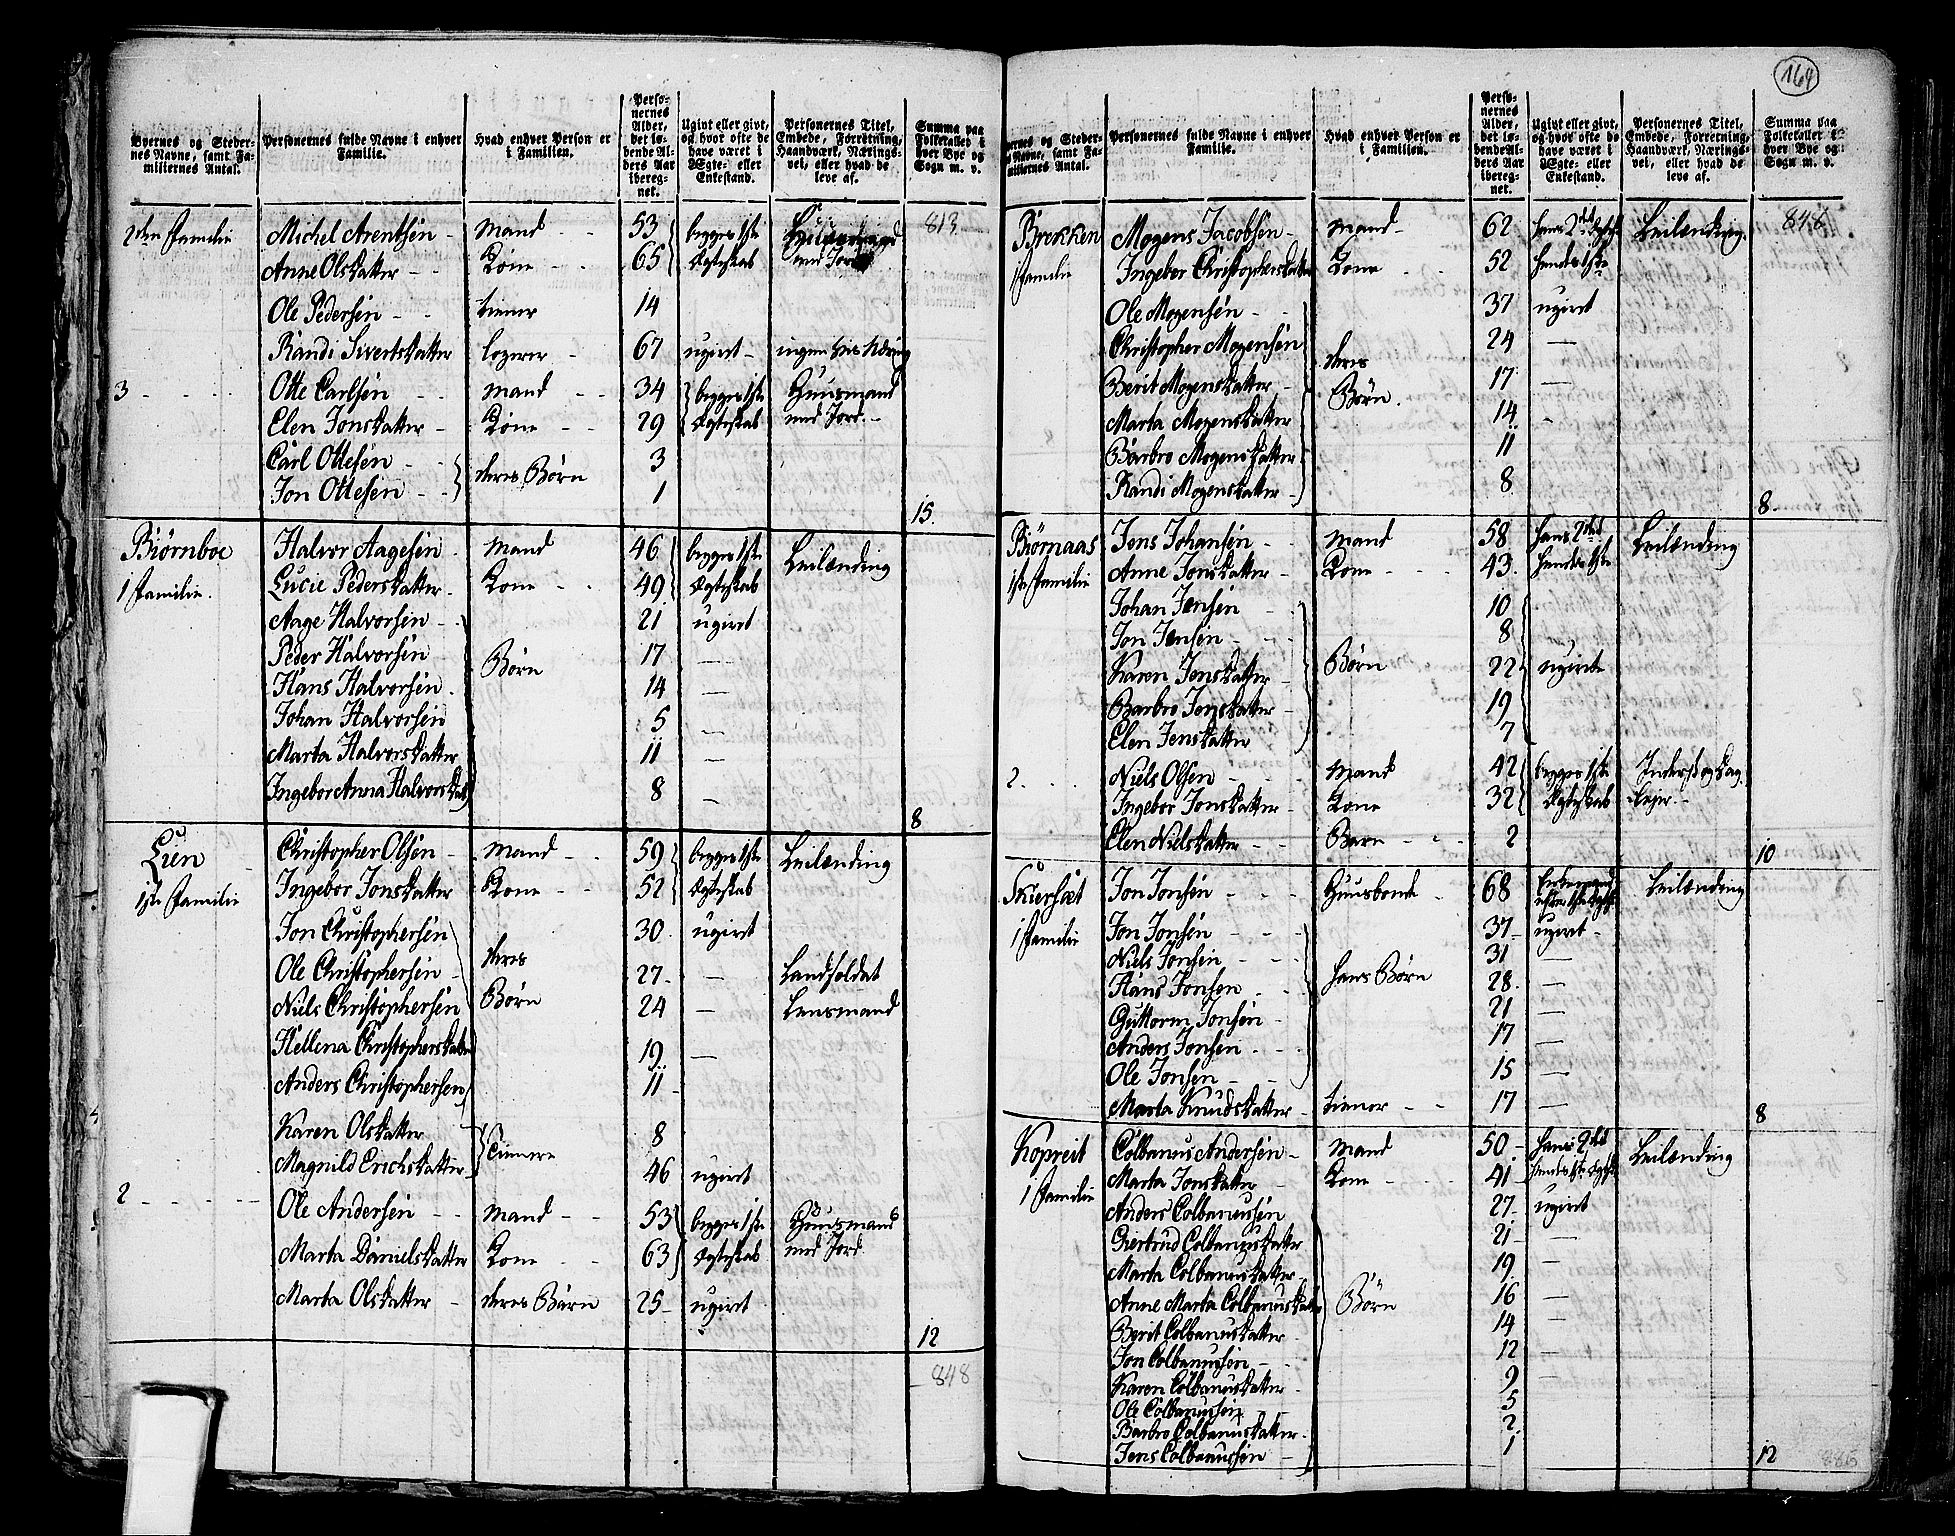 164
Byernes og Stedernes Navne, samt Familiernes Antal. | Personernes fulde Navne i enhver Familie. | Hvad enhver Person er i Familien. | Personernes Alder, det løbende Alders Aar iberegnet. | Ugivt eller givt, og hvor ofte de have været i Ægte- eller Enkestand. | Personernes Titel, Embede, Forretning, Haandværk, Næringsvei, eller hvad de leve af. | Summa paa Folketallet i hver Bye og Sogn m. v.
2den Familie | Michel Arentsen | Mand | 53 | begge 1ste | Huusmand | 813
Anne Olsdatter | Kone | 65 | Ægteskab | med Jord
Ole Pedersen | tiener | 14
Randi Sivertsdatter | logerer | 67 | ugivt | ingen vis Næring
3 | Otte Carlsen | Mand | 34 | begge 1ste | Huusmand
Elen Jonsdatter | Kone | 29 | Ægteskab | med Jord
Carl Ottesen | deres Børn | 3
Jon Ottesen | 1
15.
Biørnboe | Halvor Aagesen | Mand | 46 | begge 1ste | Leilænding
1 Familie. | Lucie Pedersdatter | Kone | 49 | Ægteskab
Aage Halvorsen | 21 | ugivt
Peder Halvorsen | Børn | 17 | —
Hans Halvorsen | 14 | —
Johan Halvorsen | 5 | —
Marta Halvorsdatter | 11 | —
Ingebor Anna Halvorsdat | 8 | —
8
Lien | Christopher Olsen | Mand | 59 | begge 1ste | Leilænding
1ste Familie | Ingebor Jonsdatter | Kone | 52 | Ægteskab
Jon Christophersen | deres | 30 | ugivt
Ole Christophersen | 27 | — | Landsoldat
Niels Christophersen | Børn | 24 | — | Lensmand
Hellena Christophersdatter | 19 | —
Anders Christophersen | 11
Karen Olsdatter | Tienere | 8
Magnild Erichsdatter | 46 | ugivt
2 | Ole Andersen | Mand | 53 | begge 1ste | Huusmand
Marta Danielsdatter | Kone | 63 | Ægteskab | med Jord
Marta Olsdatter | deres Barn | 25 | ugivt
12
848
Byernes og Stedernes Navne, samt Familiernes Antal. | Personernes fulde Navne i enhver Familie. | Hvad enhver Person er i Familien. | Personernes Alder, det løbende Alders Aar iberegnet. | Ugivt eller givt, og hvor ofte de have været i Ægte- eller Enkestand. | Personernes Titel, Embede, Forretning, Haandværk, Næringsvei, eller hvad de leve af. | Summa paa Folketallet i hver Bye og Sogn m. v.
Brekken | Mogens Jacobsen | Mand | 62 | hans 2det Ægtesk | Leilænding. | 848
1 Familie | Ingebor Christophersdatter | Kone | 52 | hendes 1ste
Ole Mogensen | 37 | ugivt
Christopher Mogensen | deres | 24 | —
Berit Mogensdatter | Børn. | 17 | —
Marta Mogensdatter | 14 | —
Barbro Mogensdatter | 11
Randi Mogensdatter | 8
8.
Biørnaas | Jens Johansen | Mand | 58 | hans 2det | Leilænding
1ste Familie | Anne Jonsdatter | Kone | 43 | hendes 1ste
Johan Jensen | 10
Jon Jensen | 8
Karen Jensdatter | Børn | 22 | ugivte
Barbro Jensdatter | 19
Elen Jensdatter | 7
2. | Niels Olsen | Mand | 42 | begge 1ste | Inderst og dag
Ingebor Jonsdatter | Kone | 32 | Ægteskab | lejer
Elen Nielsdatter | Barn | 2
10
Skiersæt | Jon Jonsen | Huusbonde | 68 | Enkemand efter 1ste Ægtesk | Leilænding
1 Familie | Jon Jonsen | 37 | ugivt
Niels Jonsen | 31 | —
Hans Jonsen | hans Børn | 28 | —
Guttorm Jonsen | 21 | —
Anders Jonsen | 17 | —
Ole Jonsen | 15 | —
Marta Knudsdatter | tiener | 17 | —
8
Kopreit | Colbanus Andersen | Mand | 50 | hans 2det | Leilænding
1 Familie | Marta Jonsdatter | Kone | 41 | hendes 1ste Ægtesk
Anders Colbanussen | 27 | ugivt
Giertrud Colbanusdatter | 21 | —
Marta Colbanusdatter | 19 | —
Anne Marta Colbanusdatter | Børn | 16 | —
Berit Colbanusdatter | 14 | —
Jon Colbanussen | 12 | —
Karen Colbanusdatter | 9
Ole Colbanussen | 5
Barbro Colbanusdatter | 2
Jens Colbanussen | 1
12
886